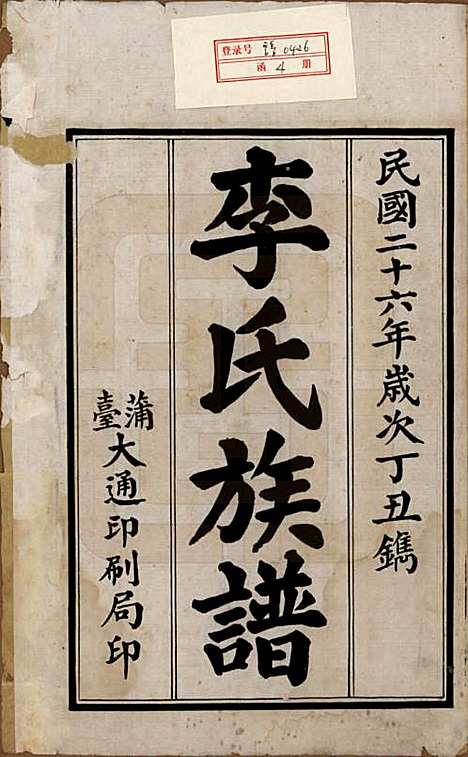 登录号 0426
函 4 册
民國二十六年歲次丁丑鐫
李氏族譜
蒲臺大通印刷局印